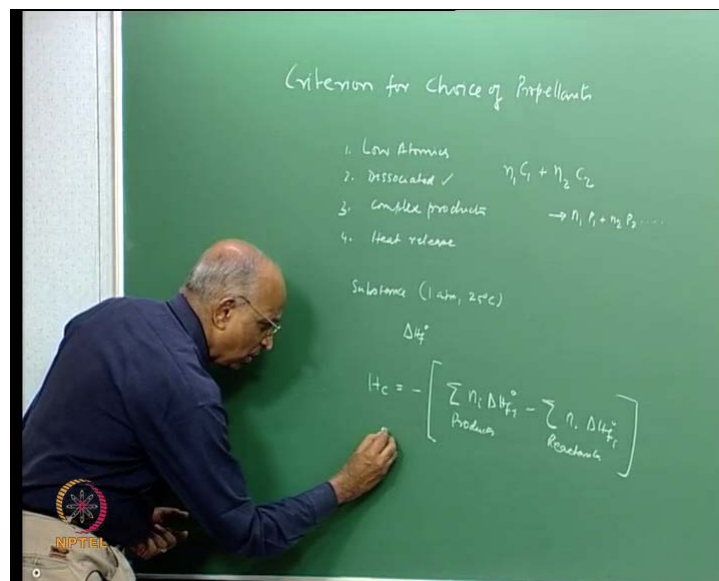 Criterion for Choice of Propellants
1. Low Atomics
2. Dissociated ✓
3. Complex products
4. Heat release
n₁C₁ + n₂C₂
→ n₁P₁ + n₂P₂ ....
Substance (1 atm, 25°C)
ΔH°f
Hc = - [ Σ ni ΔH°fi - Σ ni ΔH°fi ]
Products Reactants
NPTEL